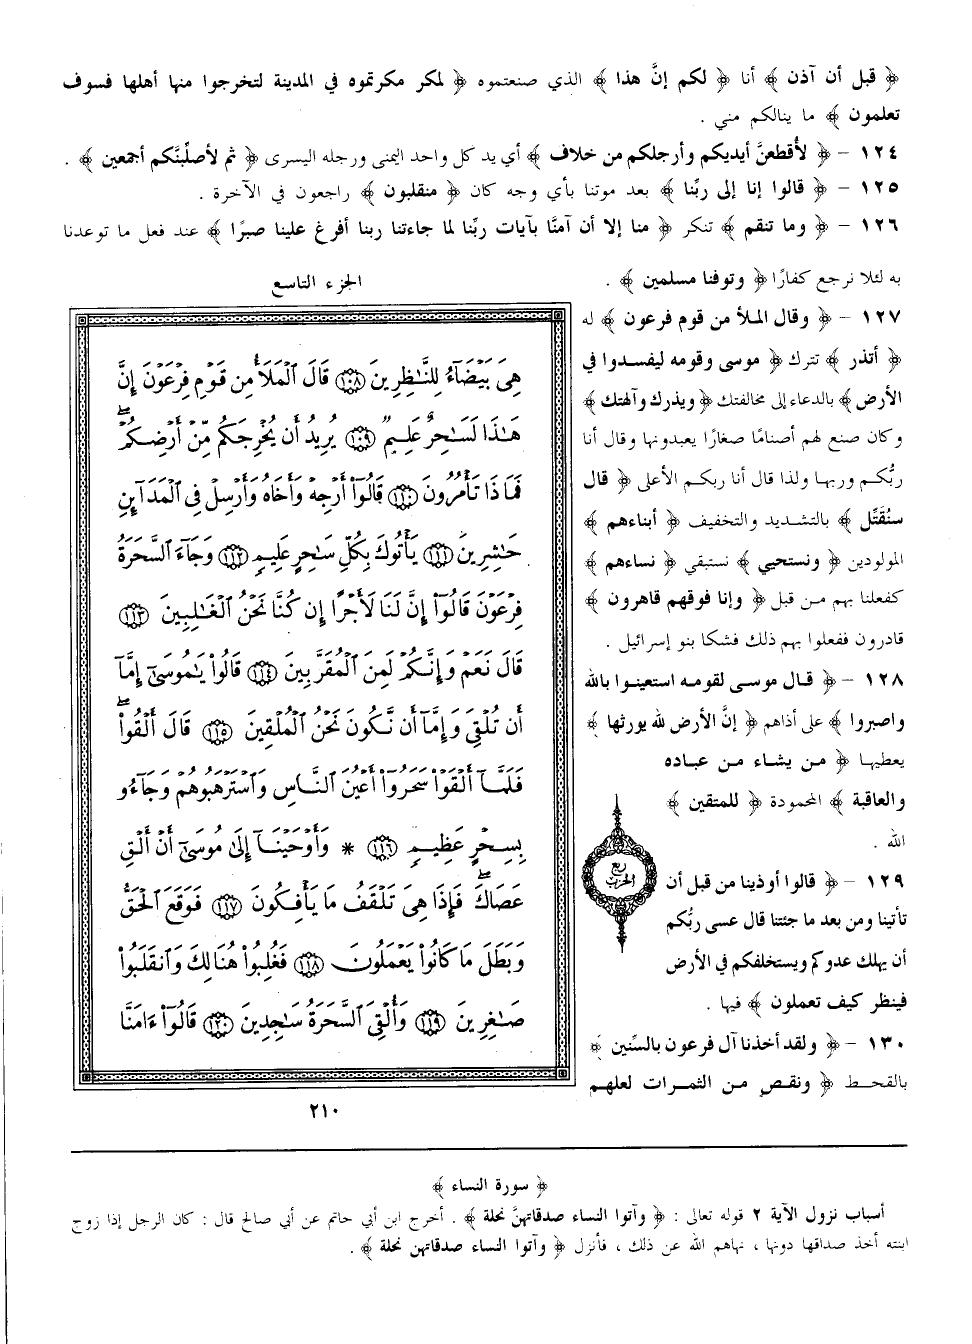 ﴿ قبل أن آذن ﴾ أنا ﴿ لكم إنَّ هذا ﴾ الذي صنعتموه ﴿ لمكر مكرتموه في المدينة لتخرجوا منها أهلها فسوف
تعلمون ﴾ ما ينالكم مني .
١٢٤ – ﴿ لأُقطعنَّ أيديكم وأرجلكم من خلاف ﴾ أي يد كل واحد اليمنى ورجله اليسرى ﴿ ثم لأصلّبنَّكم أجمعين ﴾ .
١٢٥ – ﴿ قالوا إنا إلى ربِّنا ﴾ بعد موتنا بأي وجه كان ﴿ منقلبون ﴾ راجعون في الآخرة .
١٢٦ – ﴿ وما تنقم ﴾ تنكر ﴿ منا إلا أن آمنَّا بآيات ربِّنا لما جاءتنا ربنا أفرغ علينا صبرًا ﴾ عند فعل ما توعدنا
به لئلا نرجع كفارًا ﴿ وتوفنا مسلمين ﴾ .
١٢٧ – ﴿ وقال الملأ من قوم فرعون ﴾ له
﴿ أتذر ﴾ تترك ﴿ موسى وقومه ليفسدوا في
الأرض﴾ بالدعاء إلى مخالفتك ﴿ ويذرك وآلهتك ﴾
وكان صنع لهم أصنامًا صغارًا يعبدونها وقال أنا
ربُّكم وربها ولذا قال أنا ربكم الأعلى ﴿ قال
سنُقتِّل ﴾ بالتشديد والتخفيف ﴿ أبناءهم ﴾
المولودين ﴿ ونستحيي ﴾ نستبقي ﴿ نساءهم ﴾
كفعلنا بهم من قبل ﴿ وإنا فوقهم قاهرون ﴾
قادرون ففعلوا بهم ذلك فشكا بنو إسرائيل .
١٢٨ – ﴿ قال موسى لقومه استعينوا بالله
واصبروا ﴾ على أذاهم ﴿ إنَّ الأرض لله يورثها ﴾
يعطيها ﴿ من يشاء من عباده
والعاقبة ﴾ المحمودة ﴿ للمتقين ﴾
الله .
١٢٩ – ﴿ قالوا أوذينا من قبل أن
تأتينا ومن بعد ما جئتنا قال عسى ربُّكم
أن يهلك عدوكم ويستخلفكم في الأرض
فينظر كيف تعملون ﴾ فيها .
١٣٠ – ﴿ ولقد أخذنا آل فرعون بالسِّنين ﴾
بالقحط ﴿ ونقص من الثمرات لعلهم
ربع
الحزب
الجزء التاسع
هِىَ بَيۡضَآءُ لِلنَّٰظِرِينَ ١٠٨ قَالَ ٱلۡمَلَأُ مِن قَوۡمِ فِرۡعَوۡنَ إِنَّ
هَٰذَا لَسَٰحِرٌ عَلِيمٞ ١٠٩ يُرِيدُ أَن يُخۡرِجَكُم مِّنۡ أَرۡضِكُمۡۖ
فَمَاذَا تَأۡمُرُونَ ١١٠ قَالُوٓاْ أَرۡجِهۡ وَأَخَاهُ وَأَرۡسِلۡ فِى ٱلۡمَدَآئِنِ
حَٰشِرِينَ ١١١ يَأۡتُوكَ بِكُلِّ سَٰحِرٍ عَلِيمٖ ١١٢ وَجَآءَ ٱلسَّحَرَةُ
فِرۡعَوۡنَ قَالُوٓاْ إِنَّ لَنَا لَأَجۡرًا إِن كُنَّا نَحۡنُ ٱلۡغَٰلِبِينَ ١١٣
قَالَ نَعَمۡ وَإِنَّكُمۡ لَمِنَ ٱلۡمُقَرَّبِينَ ١١٤ قَالُواْ يَٰمُوسَىٰٓ إِمَّآ
أَن تُلۡقِىَ وَإِمَّآ أَن نَّكُونَ نَحۡنُ ٱلۡمُلۡقِينَ ١١٥ قَالَ أَلۡقُواْۖ
فَلَمَّآ أَلۡقَوۡاْ سَحَرُوٓاْ أَعۡيُنَ ٱلنَّاسِ وَٱسۡتَرۡهَبُوهُمۡ وَجَآءُو
بِسِحۡرٍ عَظِيمٖ ١١٦ * وَأَوۡحَيۡنَآ إِلَىٰ مُوسَىٰٓ أَنۡ أَلۡقِ
عَصَاكَۖ فَإِذَا هِىَ تَلۡقَفُ مَا يَأۡفِكُونَ ١١٧ فَوَقَعَ ٱلۡحَقُّ
وَبَطَلَ مَا كَانُواْ يَعۡمَلُونَ ١١٨ فَغُلِبُواْ هُنَالِكَ وَٱنقَلَبُواْ
صَٰغِرِينَ ١١٩ وَأُلۡقِىَ ٱلسَّحَرَةُ سَٰجِدِينَ ١٢٠ قَالُوٓاْ ءَامَنَّا
٢١٠
﴿ سورة النساء ﴾
أسباب نزول الآية ٢ قوله تعالى : ﴿ وآتوا النساء صدقاتهنَّ نحلة ﴾ . أخرج ابن أبي حاتم عن أبي صالح قال : كان الرجل إذا زوج
ابنته أخذ صداقها دونها ، نهاهم الله عن ذلك ، فأنزل ﴿ وآتوا النساء صدقاتهن نحلة ﴾ .